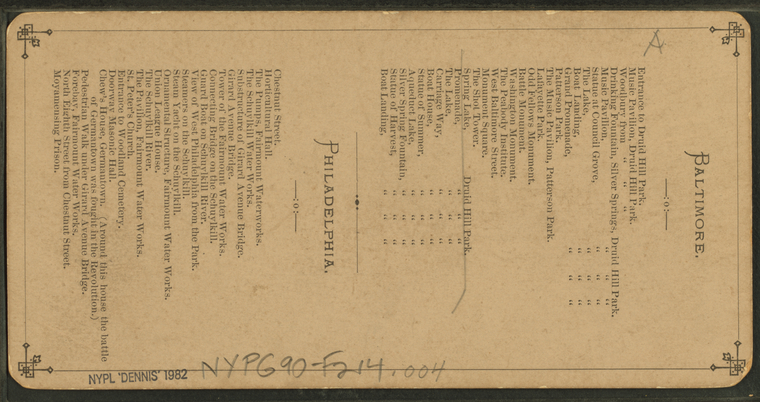 BALTIMORE.
—:o:—
Entrance to Druid Hill Park.
Music Pavilion, Druid Hill Park.
Woodbury from " " "
Drinking Fountain, Silver Springs, Druid Hill Park.
Music Pavilion, " " "
Statue at Council Grove, " " "
The Lake, " " "
Boat Landing, " " "
Grand Promenade, " " "
Patterson Park.
The Music Pavilion, Patterson Park.
Lafayette Park.
Oddfellows Monument.
Battle Monument.
Washington Monument.
The Peabody Institute.
West Baltimore Street.
Monument Square.
The Shot Tower.
Spring Lake, Druid Hill Park.
Promenade, " " "
The Lake, " " "
Carriage Way, " " "
Boat House, " " "
Statue of Summer, " " "
Aqueduct Lake, " " "
Silver Spring Fountain, " " "
Statue of Harvest, " " "
Boat Landing, " " "
PHILADELPHIA.
—:o:—
Chestnut Street.
Horticultural Hall.
The Pumps, Fairmount Waterworks.
The Schuylkill Water Works.
Substructure of Girard Avenue Bridge.
Girard Avenue Bridge.
Tower of the Fairmount Water Works.
Connecting Bridge on the Schuylkill.
Girard Boat on Schuylkill River.
View of West Philadelphia from the Park.
Steamers on the Schuylkill.
Steam Yacht on the Schuylkill.
Ornamental Structure, Fairmount Water Works.
Union League House.
The Schuylkill River.
The Pavilion, Fairmount Water Works.
St. Peter's Church.
Entrance to Woodland Cemetery.
Doorway, Masonic Hall.
Chew's House, Germantown. (Around this house the battle
of Germantown was fought in the Revolution.)
Pedestrian Walk under Girard Avenue Bridge.
Forebay, Fairmount Water Works.
North Eighth Street from Chestnut Street.
Moyamensing Prison.
A
NYPL 'DENNIS' 1982
NYPG90-F214.004